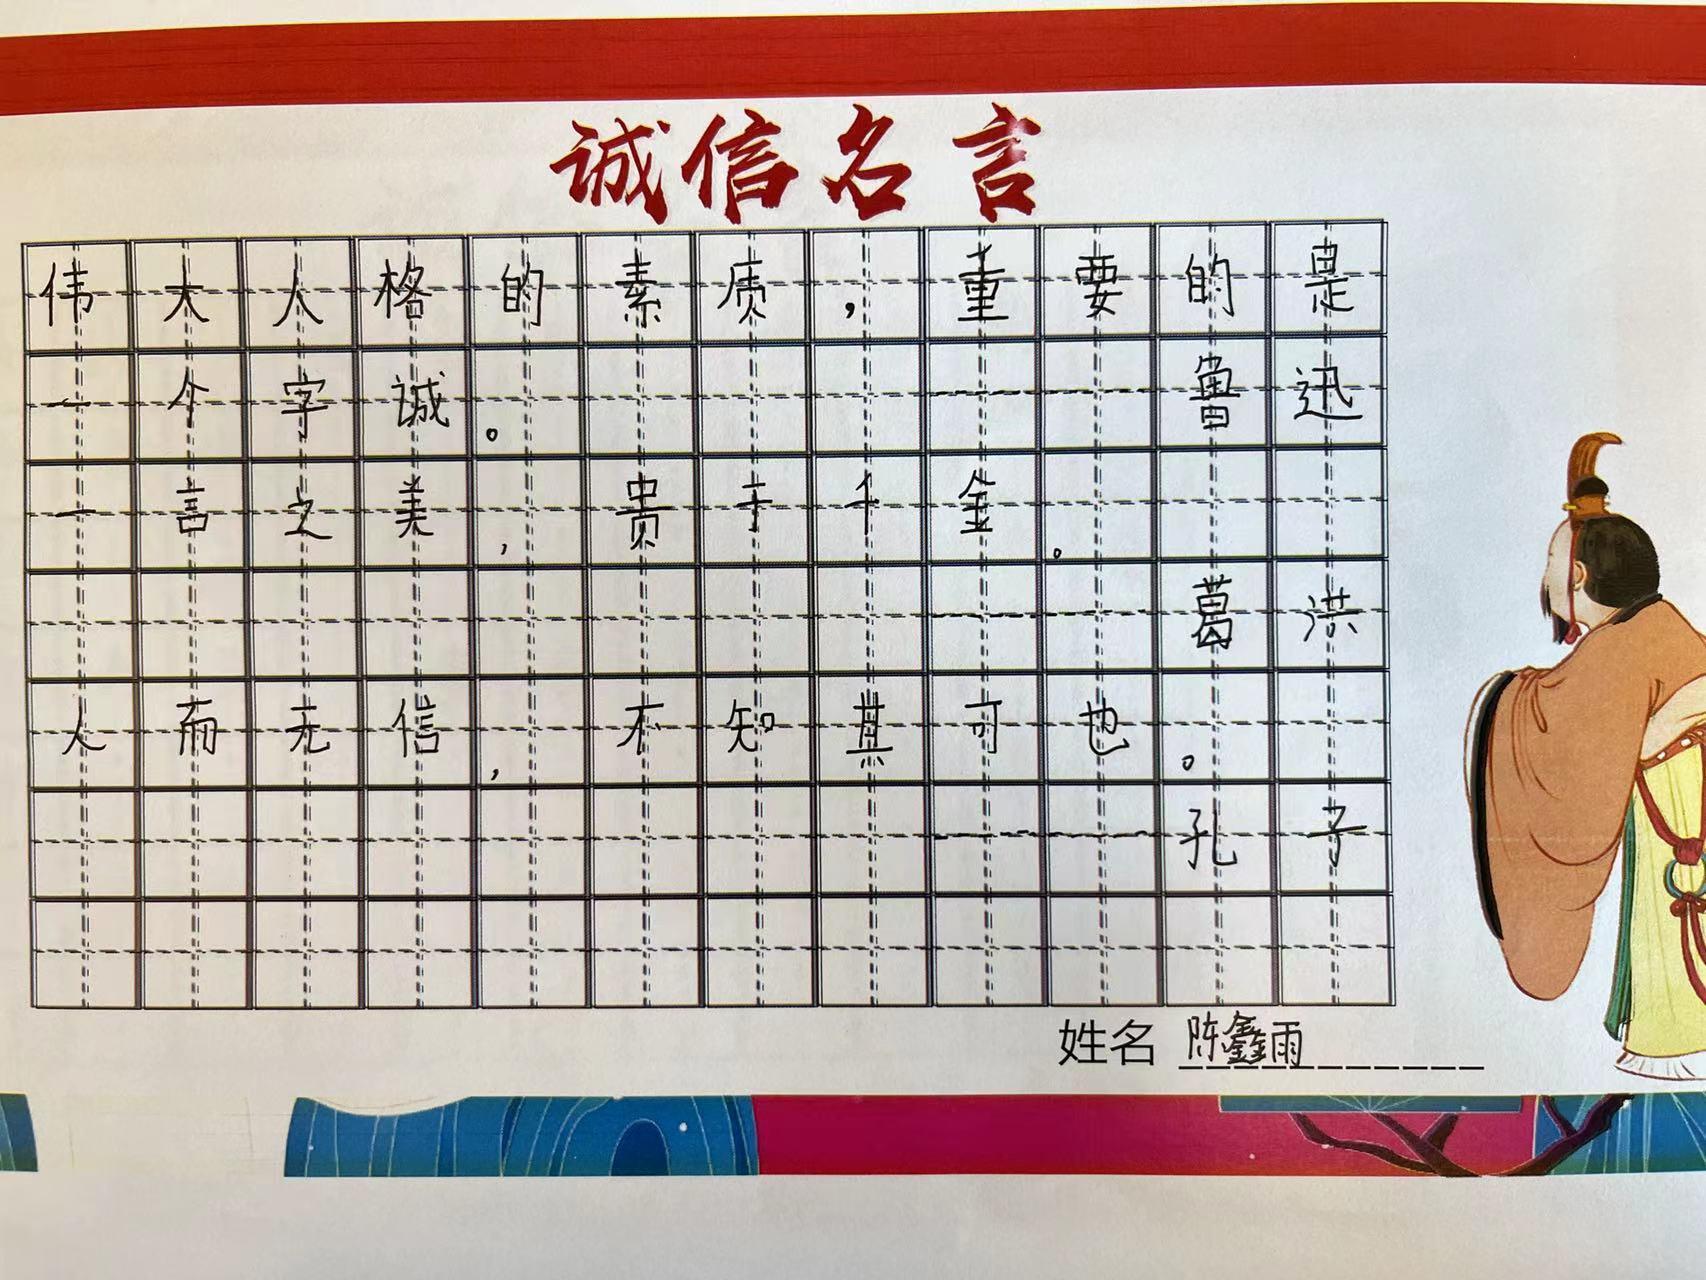 诚信名言
伟大人格的素质，重要的是
一个字诚。——鲁迅
一言之美，贵于千金。
——葛洪
人而无信，不知其可也。
——孔子
姓名 陈鑫雨